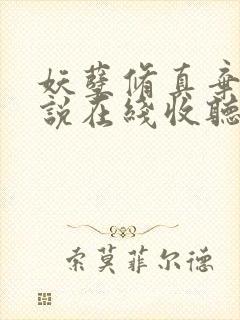 妖孽脩真棄
說在綫收聽
索莫菲尔德